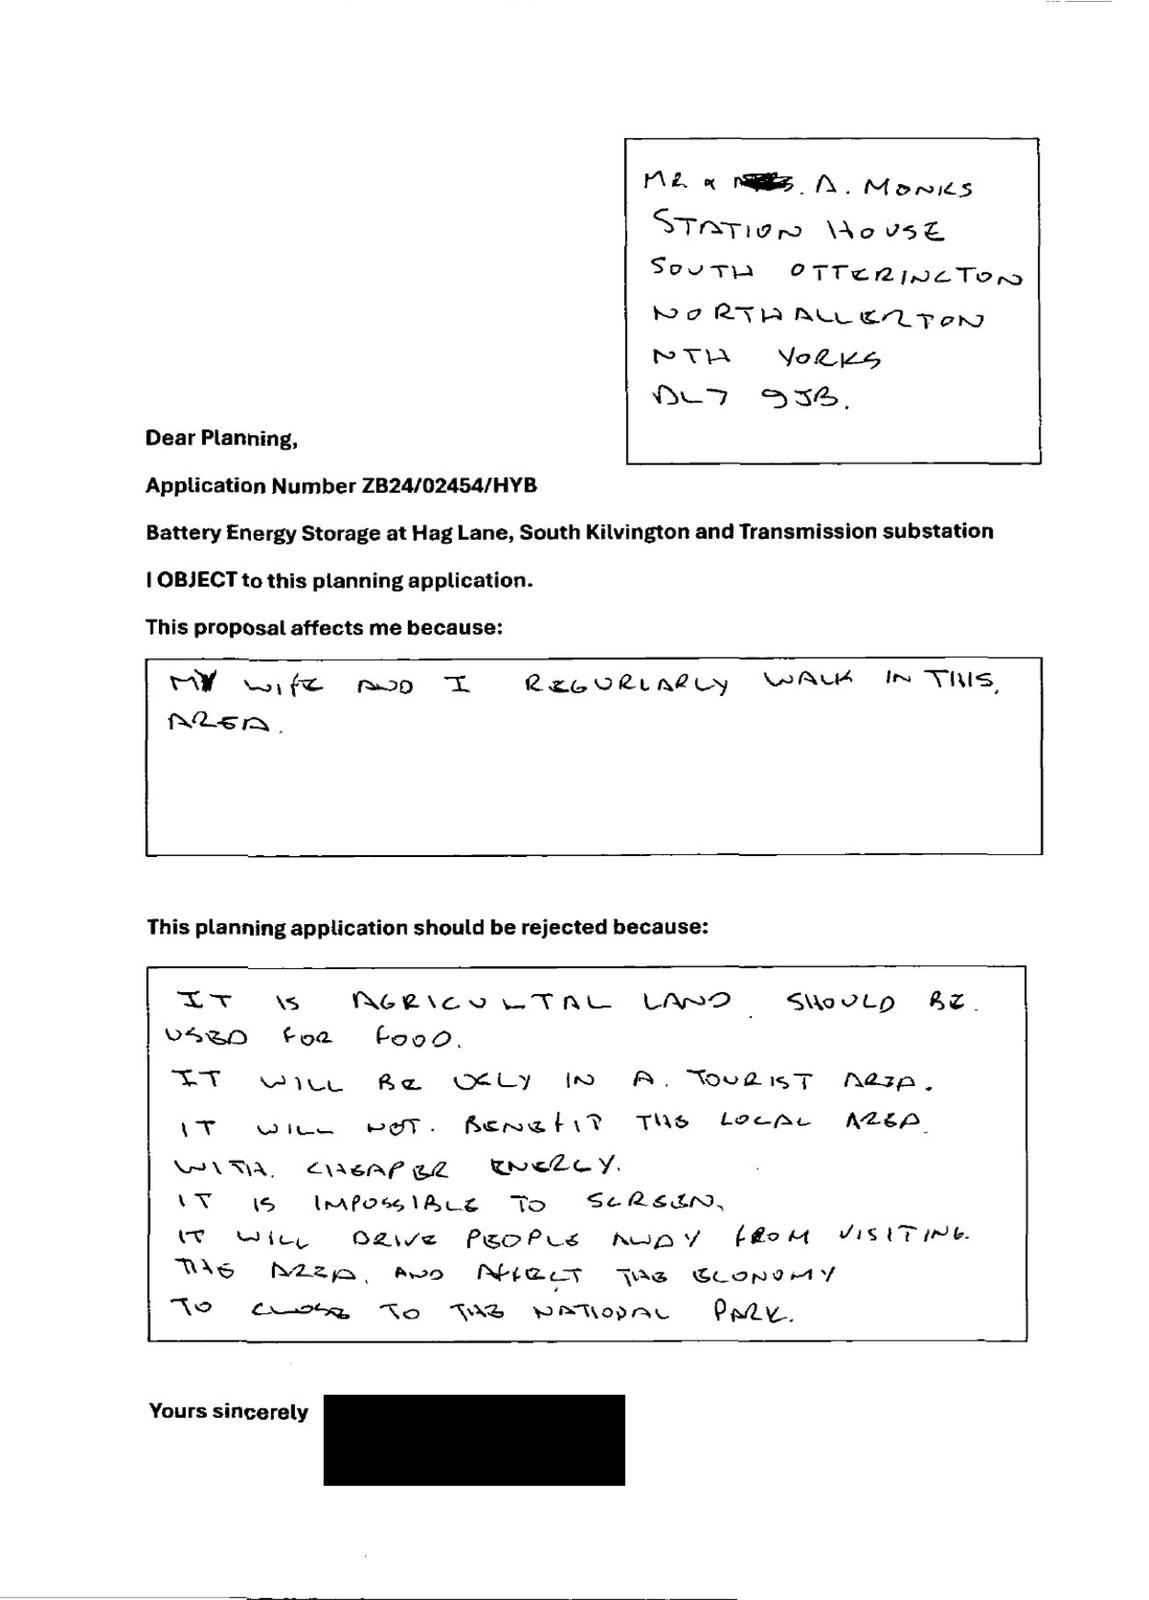 MR & MRS. A. MONKS
STATION HOUSE
SOUTH OTTERINGTON
NORTHALLERTON
NTH YORKS
DL7 9JB.
Dear Planning,
Application Number ZB24/02454/HYB
Battery Energy Storage at Hag Lane, South Kilvington and Transmission substation
I OBJECT to this planning application.
This proposal affects me because:
MY WIFE AND I REGURLARLY WALK IN THIS,
AREA.
This planning application should be rejected because:
IT IS AGRICULTAL LAND. SHOULD BE.
USED FOR FOOD.
IT WILL BE UGLY IN A. TOURIST AREA.
IT WILL NOT. BENEFIT THE LOCAL AREA.
WITH. CHEAPER ENERGY.
IT IS IMPOSSIBLE TO SCREEN,
IT WILL DRIVE PEOPLE AWAY FROM VISITING.
THE AREA. AND AFFECT THE ECONOMY
TO CLOSE TO THE NATIONAL PARK.
Yours sincerely